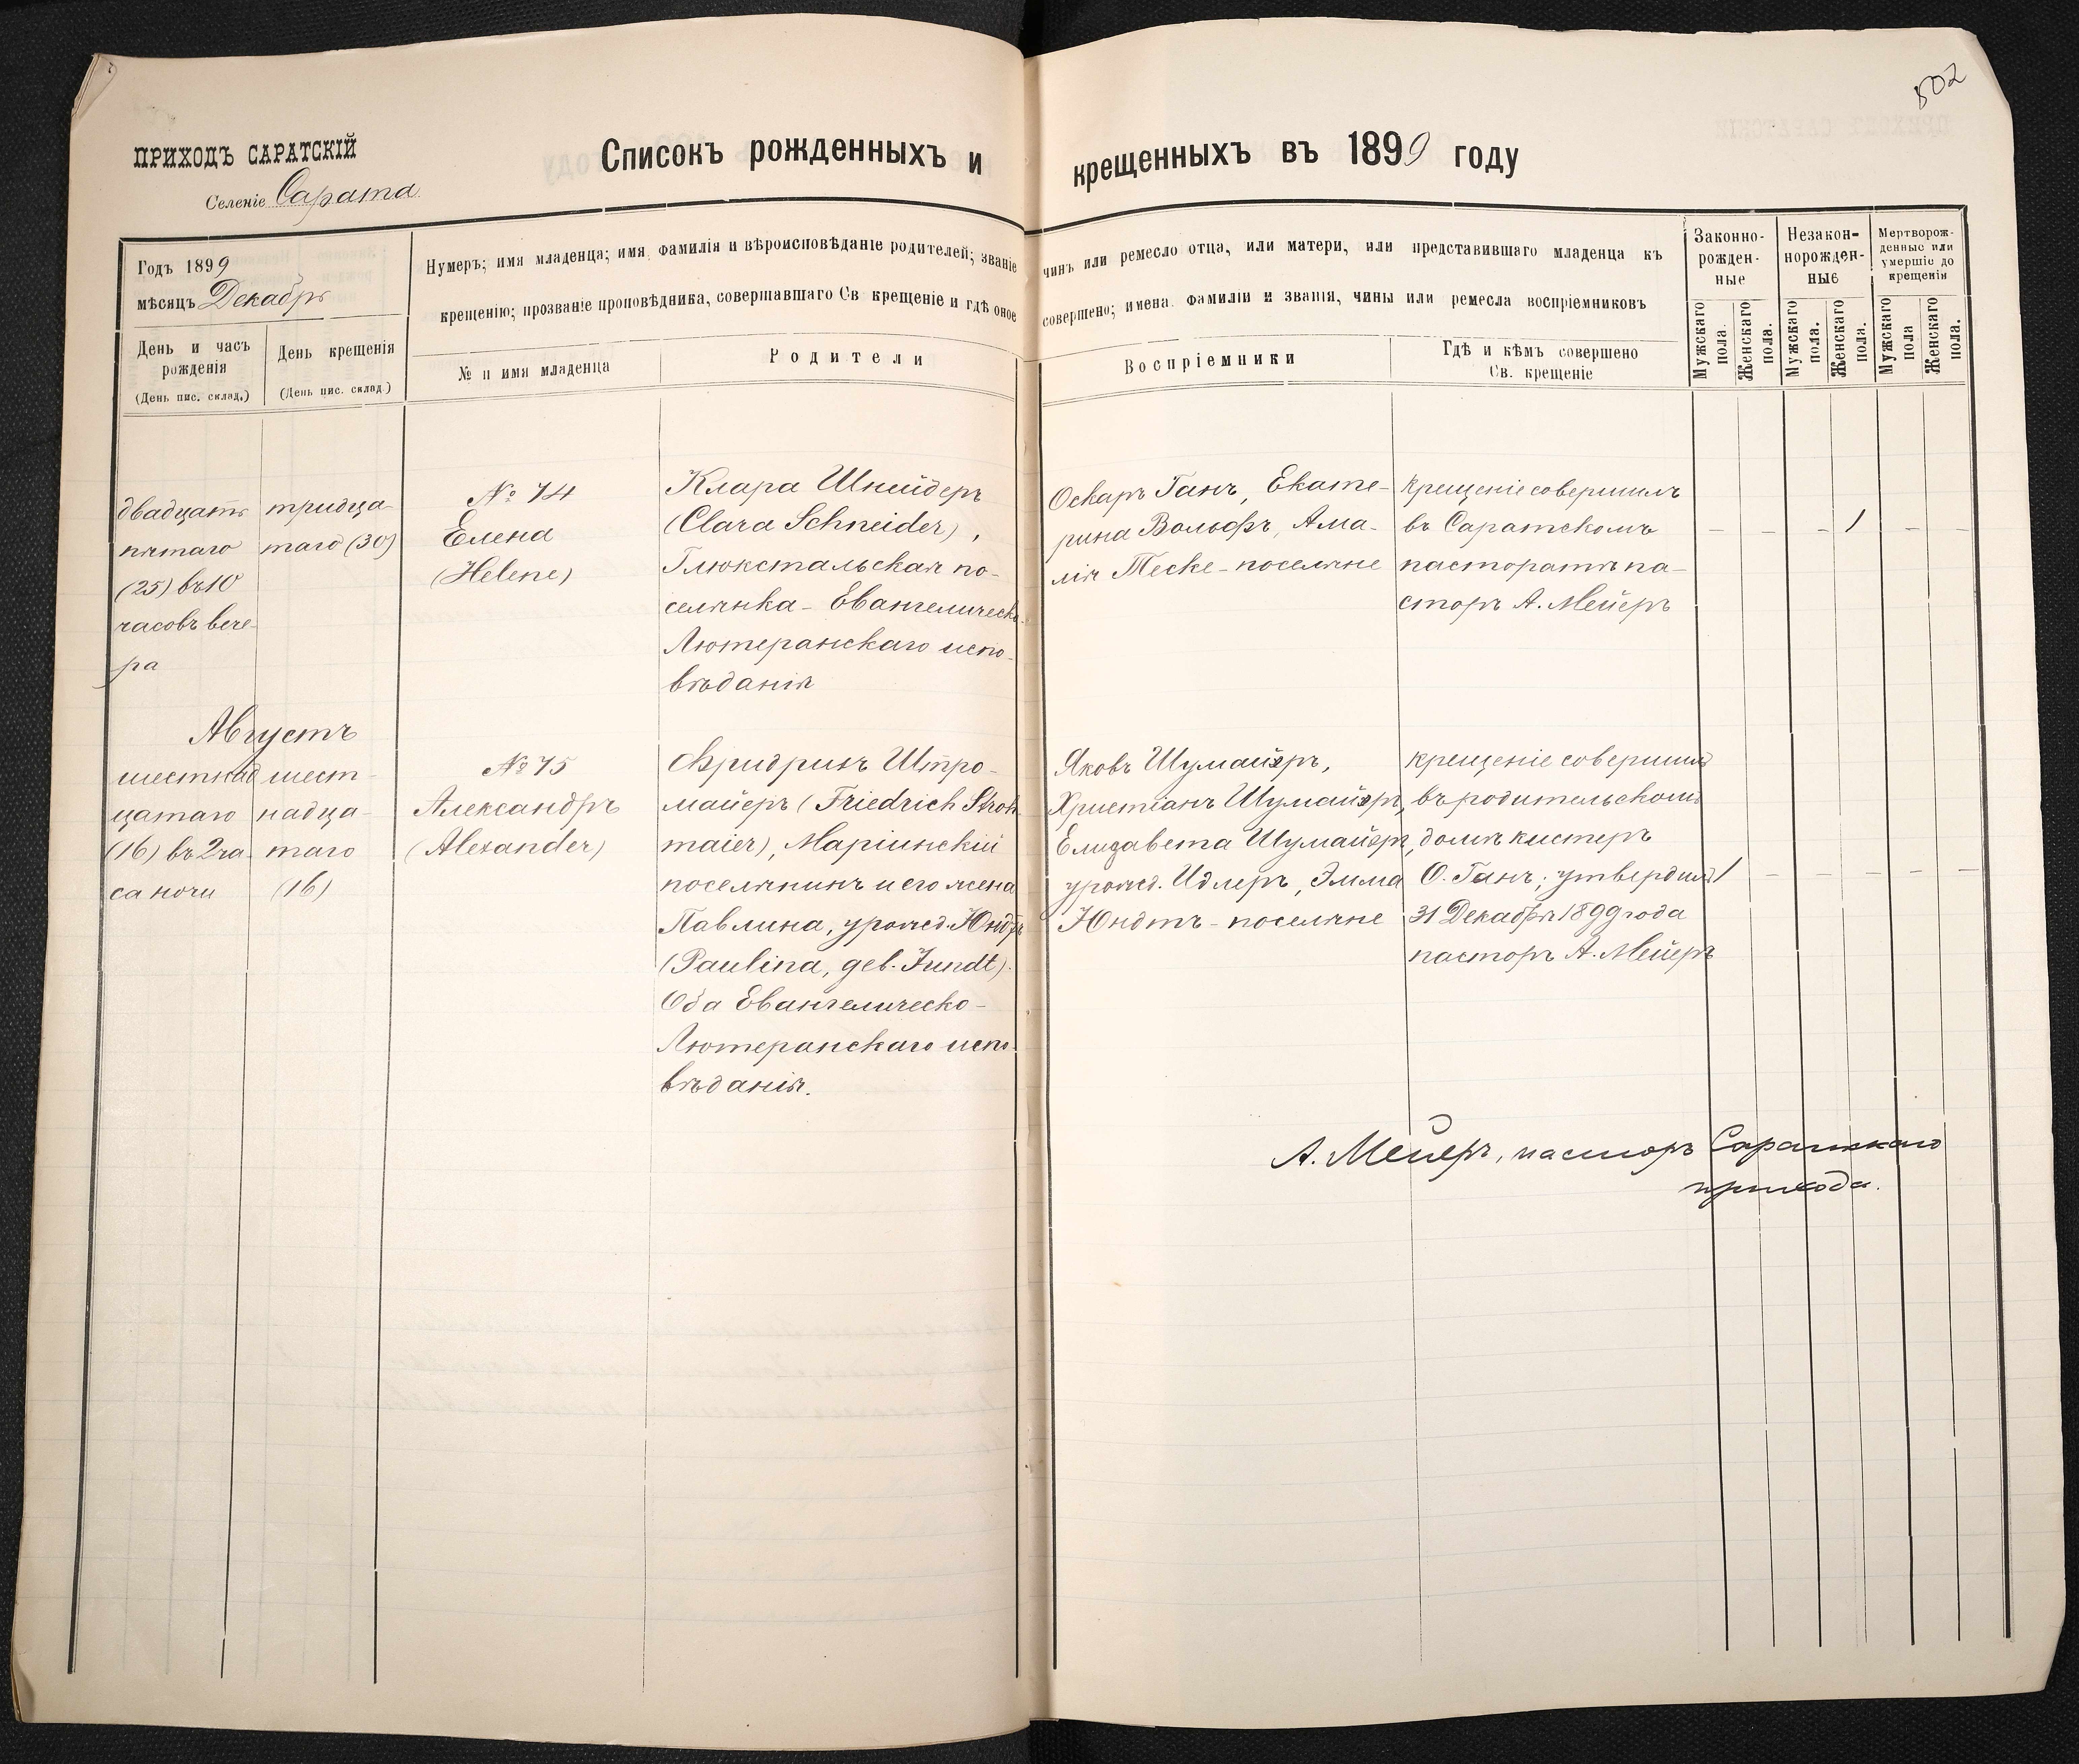 502
ПРИХОДЪ САРАТСКІЙ
Селеніе Сарата
Списокъ рожденныхъ и крещенныхъ въ 1899 году
Годъ 1899
мѣсяцъ Декабрь
День и часъ рожденія
(День пис. склад.)
День крещенія
(День пис. склад.)
Нумеръ; имя младенца; имя, фамилія и вѣроисповѣданіе родителей; званіе чинъ или ремесло отца, или матери, или представившаго младенца къ
крещенію; прозваніе проповѣдника, совершавшаго Св крещеніе и гдѣ оное совершено; имена фамиліи и званія, чины или ремесла воспріемниковъ
№ и имя младенца
Родители
Воспріемники
Гдѣ и кѣмъ совершено
Св. крещеніе
Законно-
рожден-
ные
Незакон-
норожден-
ные
Мертворож-
денные или
умершіе до
крещенія
Мужскаго пола.
Женскаго пола.
Мужскаго пола.
Женскаго пола.
Мужскаго пола
Женскаго пола.
двадцать
пятаго
(25) въ 10
часовъ вече-
ра
тридца-
таго (30)
№ 74
Елена
(Helene)
Клара Шнейдеръ
(Clara Schneider),
Глюкстальская по-
селянка - Евангелическо-
Лютеранскаго испо-
вѣданія
Оскаръ Ганъ, Екате-
рина Вольфъ, Ама-
лія Теске - поселяне
крещеніе совершилъ
въ Саратскомъ
пасторатѣ па-
сторъ А. Мейеръ
- - - 1 - -
Августъ
шестнад
цатаго
(16) въ 2 ча-
са ночи
шест-
надца-
таго
(16)
№ 75
Александръ
(Alexander)
Фридрихъ Штро-
майеръ (Friedrich Stroh
maier), Маріинскій
поселянинъ и его жена
Павлина, урожд. Юндтъ
(Paulina, geb. Jundt).
Оба Евангелическо-
Лютеранскаго испо-
вѣданія.
Яковъ Шумайеръ,
Христіанъ Шумайеръ,
Елизавета Шумайеръ,
урожд. Идлеръ, Эмма
Юндтъ - поселяне
крещеніе совершилъ
въ родительскомъ
домѣ кистеръ
О. Ганъ; утвердилъ
31 Декабря 1899 года
пасторъ А. Мейеръ
1 - - - - -
А. Мейеръ, пасторъ Саратскаго
прихода.